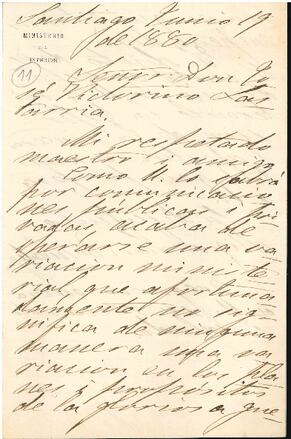 Santiago, Junio 19
de 1880.
MINISTERIO
DEL
INTERIOR
11
Señor Don Jo
sé Victorino Las
tarria.
Mi respetado
maestro i amigo:
Como U. lo sabrá
por comunicacio
nes públicas i pri
vadas, acaba de
operarse una va
riacion ministe
rial que afortuna
damente no sig
nifica de ninguna
manera una va
riacion en los pla
nes i propósitos
de la gloriosa gue